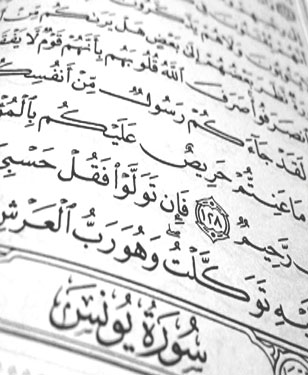 وَلَا هُمْ
بَعْضُهُمْ إِلَىٰ بَعْضٍ هَلْ يَرَىٰكُم مِّنْ
ٱنصَرَفُوا۟ صَرَفَ ٱللَّهُ قُلُوبَهُم بِأَنَّهُمْ قَوْمٌ لَّا
لَقَدْ جَآءَكُمْ رَسُولٌ مِّنْ أَنفُسِكُ
مَا عَنِتُّمْ حَرِيصٌ عَلَيْكُم بِٱلْمُؤ
رَّحِيمٌ ١٢٨ فَإِن تَوَلَّوْا۟ فَقُلْ حَسْبِيَ
ـهِ تَوَكَّلْتُ وَهُوَ رَبُّ ٱلْعَرْشِ
سُورَةُ يُونُسَ